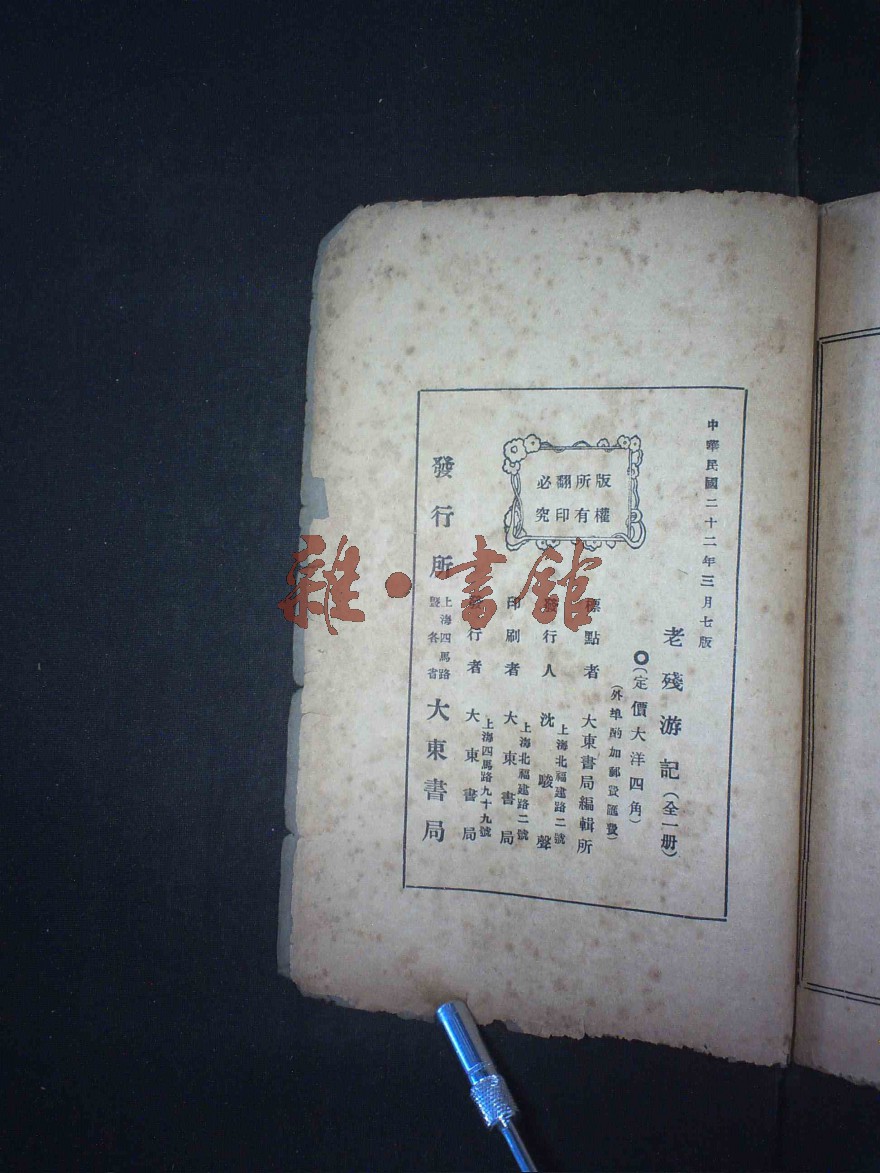 中華民國二十二年三月七版
老殘游記(全一册)
(定價大洋四角)
(外埠酌加郵費匯費)
標點者 大東書局編輯所
發行人 沈駿聲
上海北福建路二號
印刷者 大東書局
上海北福建路二號
發行者 大東書局
上海四馬路九十九號
發行所 上海四馬路暨各省 大東書局
版權
所有
翻印
必究
雜·書館